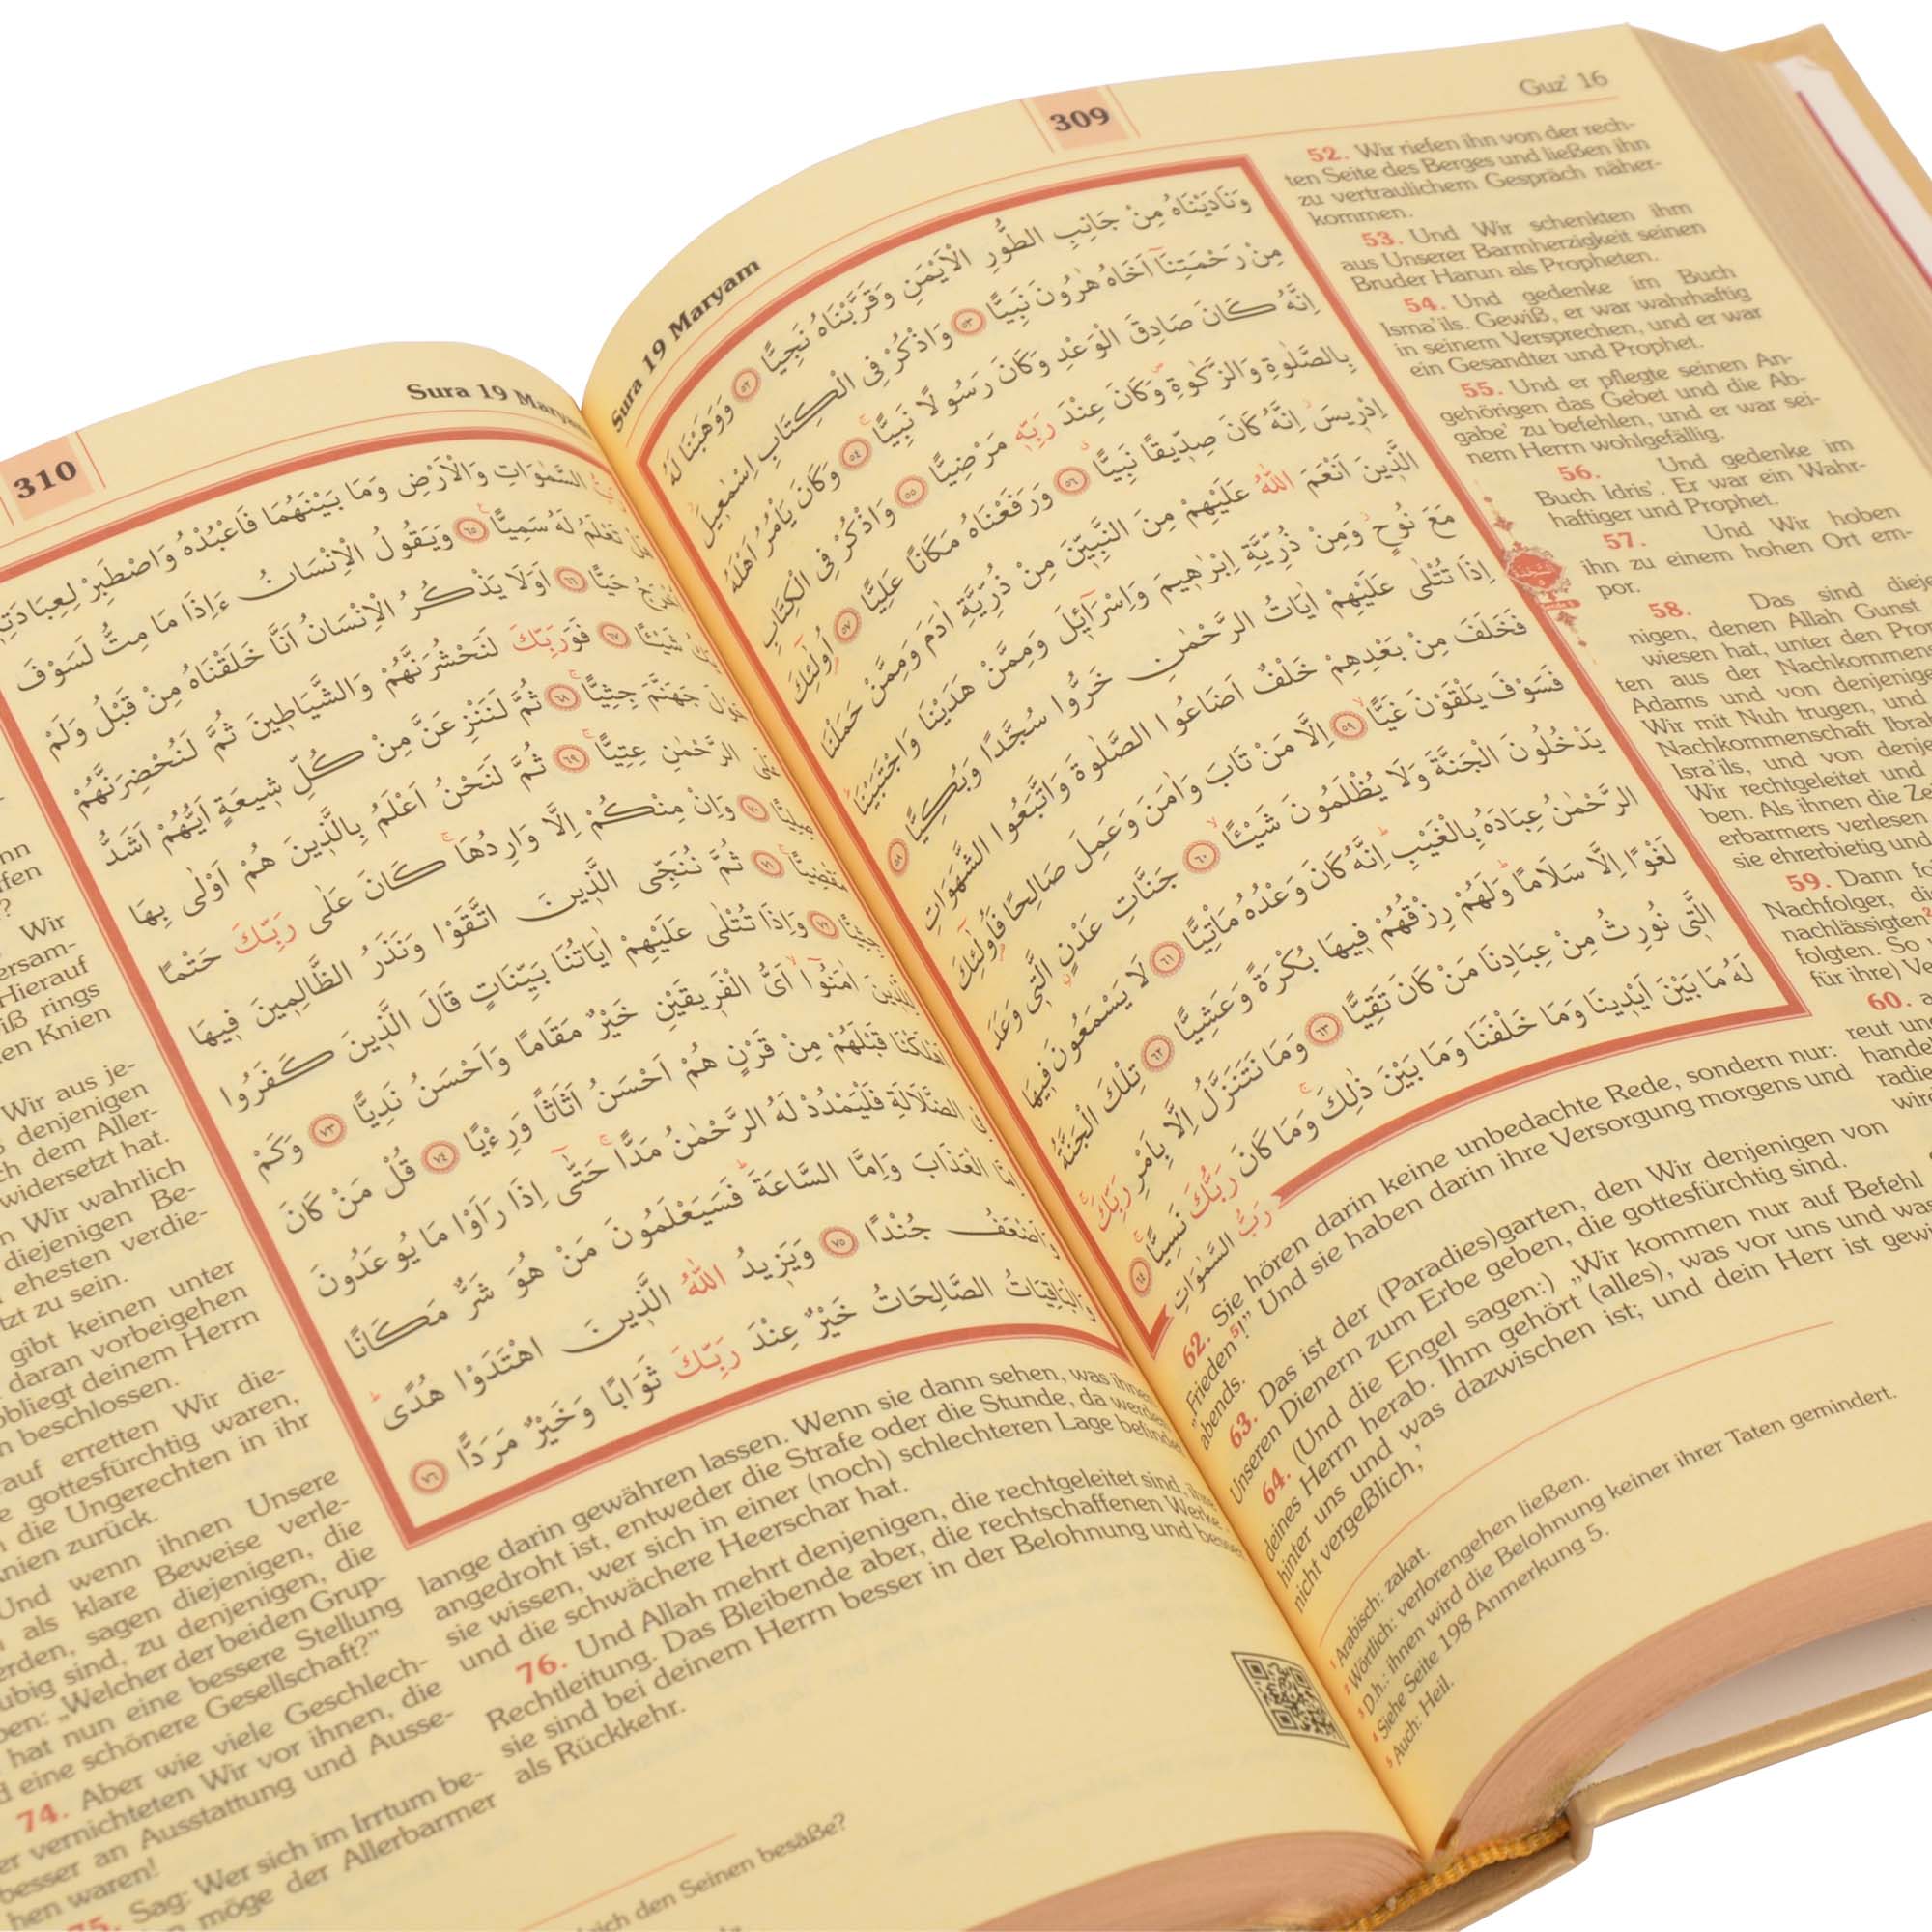 309
Guz' 16
Sura 19 Maryam
وَنَادَيْنَاهُ مِنْ جَانِبِ الطُّورِ الْاَيْمَنِ وَقَرَّبْنَاهُ نَجِيًّا ﴿٥٢﴾ وَوَهَبْنَا لَهُ
مِنْ رَحْمَتِنَٓا اَخَاهُ هٰرُونَ نَبِيًّا ﴿٥٣﴾ وَاذْكُرْ فِى الْكِتَابِ اِسْمٰعٖيلَ
اِنَّهُ كَانَ صَادِقَ الْوَعْدِ وَكَانَ رَسُولًا نَبِيًّا ﴿٥٤﴾ وَكَانَ يَأْمُرُ اَهْلَهُ
بِالصَّلٰوةِ وَالزَّكٰوةِ وَكَانَ عِنْدَ رَبِّهٖ مَرْضِيًّا ﴿٥٥﴾ وَاذْكُرْ فِى الْكِتَابِ
اِدْرٖيسَ اِنَّهُ كَانَ صِدّٖيقًا نَبِيًّا ﴿٥٦﴾ وَرَفَعْنَاهُ مَكَانًا عَلِيًّا ﴿٥٧﴾ اُولٰٓئِكَ
الَّذٖينَ اَنْعَمَ اللّٰهُ عَلَيْهِمْ مِنَ النَّبِيّٖنَ مِنْ ذُرِّيَّةِ اٰدَمَ وَمِمَّنْ حَمَلْنَا
مَعَ نُوحٍ وَمِنْ ذُرِّيَّةِ اِبْرٰهٖيمَ وَاِسْرَٓائٖلَ وَمِمَّنْ هَدَيْنَا وَاجْتَبَيْنَا
اِذَا تُتْلٰى عَلَيْهِمْ اٰيَاتُ الرَّحْمٰنِ خَرُّوا سُجَّدًا وَبُكِيًّا ﴿٥٨﴾
فَخَلَفَ مِنْ بَعْدِهِمْ خَلْفٌ اَضَاعُوا الصَّلٰوةَ وَاتَّبَعُوا الشَّهَوَاتِ
فَسَوْفَ يَلْقَوْنَ غَيًّا ﴿٥٩﴾ اِلَّا مَنْ تَابَ وَاٰمَنَ وَعَمِلَ صَالِحًا فَاُولٰٓئِكَ
يَدْخُلُونَ الْجَنَّةَ وَلَا يُظْلَمُونَ شَيْـًٔا ﴿٦٠﴾ جَنَّاتِ عَدْنٍ الَّتٖى وَعَدَ
الرَّحْمٰنُ عِبَادَهُ بِالْغَيْبِ اِنَّهُ كَانَ وَعْدُهُ مَأْتِيًّا ﴿٦١﴾ لَا يَسْمَعُونَ فٖيهَا
لَغْوًا اِلَّا سَلَامًا وَلَهُمْ رِزْقُهُمْ فٖيهَا بُكْرَةً وَعَشِيًّا ﴿٦٢﴾ تِلْكَ الْجَنَّةُ
الَّتٖى نُورِثُ مِنْ عِبَادِنَا مَنْ كَانَ تَقِيًّا ﴿٦٣﴾ وَمَا نَتَنَزَّلُ اِلَّا بِاَمْرِ رَبِّكَ
لَهُ مَا بَيْنَ اَيْدٖينَا وَمَا خَلْفَنَا وَمَا بَيْنَ ذٰلِكَ وَمَا كَانَ رَبُّكَ نَسِيًّا ﴿٦٤﴾
رَبُّ السَّمٰوَاتِ
52. Wir riefen ihn von der rech-
ten Seite des Berges und ließen ihn
zu vertraulichem Gespräch näher-
kommen.
53. Und Wir schenkten ihm
aus Unserer Barmherzigkeit seinen
Bruder Harun als Propheten.
54. Und gedenke im Buch
Isma'ils. Gewiß, er war wahrhaftig
in seinem Versprechen, und er war
ein Gesandter und Prophet.
55. Und er pflegte seinen An-
gehörigen das Gebet und die Ab-
gabe¹ zu befehlen, und er war sei-
nem Herrn wohlgefällig.
56. Und gedenke im
Buch Idris'. Er war ein Wahr-
haftiger und Prophet.
57. Und Wir hoben
ihn zu einem hohen Ort em-
por.
58. Das sind dieje
nigen, denen Allah Gunst
wiesen hat, unter den Pro
ten aus der Nachkommens
Adams und von denjenige
Wir mit Nuh trugen, und
Nachkommenschaft Ibra
Isra'ils, und von denje
Wir rechtgeleitet und
ben. Als ihnen die Ze
erbarmers verlesen
sie ehrerbietig und
59. Dann fo
Nachfolger, di
nachlässigten²
folgten. So
für ihre) Ve
60. a
reut un
hande
radie
wird
62. Sie hören darin keine unbedachte Rede, sondern nur:
„Frieden⁵!” Und sie haben darin ihre Versorgung morgens und
abends.
63. Das ist der (Paradies)garten, den Wir denjenigen von
Unseren Dienern zum Erbe geben, die gottesfürchtig sind.
64. (Und die Engel sagen:) „Wir kommen nur auf Befehl
deines Herrn herab. Ihm gehört (alles), was vor uns und was
hinter uns und was dazwischen ist; und dein Herr ist gew
nicht vergeßlich,
¹ Arabisch: zakat.
² Wörtlich: verlorengehen ließen.
³ D.h.: ihnen wird die Belohnung keiner ihrer Taten gemindert.
⁴ Siehe Seite 198 Anmerkung 5.
⁵ Auch: Heil.
310
Sura 19 Maryam
السَّمٰوَاتِ وَالْاَرْضِ وَمَا بَيْنَهُمَا فَاعْبُدْهُ وَاصْطَبِرْ لِعِبَادَتِهٖ
تَعْلَمُ لَهُ سَمِيًّا ﴿٦٥﴾ وَيَقُولُ الْاِنْسَانُ ءَاِذَا مَا مِتُّ لَسَوْفَ
حَيًّا ﴿٦٦﴾ اَوَلَا يَذْكُرُ الْاِنْسَانُ اَنَّا خَلَقْنَاهُ مِنْ قَبْلُ وَلَمْ
شَيْـًٔا ﴿٦٧﴾ فَوَرَبِّكَ لَنَحْشُرَنَّهُمْ وَالشَّيَاطٖينَ ثُمَّ لَنُحْضِرَنَّهُمْ
جَهَنَّمَ جِثِيًّا ﴿٦٨﴾ ثُمَّ لَنَنْزِعَنَّ مِنْ كُلِّ شٖيعَةٍ اَيُّهُمْ اَشَدُّ
الرَّحْمٰنِ عِتِيًّا ﴿٦٩﴾ ثُمَّ لَنَحْنُ اَعْلَمُ بِالَّذٖينَ هُمْ اَوْلٰى بِهَا
﴿٧٠﴾ وَاِنْ مِنْكُمْ اِلَّا وَارِدُهَا كَانَ عَلٰى رَبِّكَ حَتْمًا
﴿٧١﴾ ثُمَّ نُنَجِّى الَّذٖينَ اتَّقَوْا وَنَذَرُ الظَّالِمٖينَ فٖيهَا
﴿٧٢﴾ وَاِذَا تُتْلٰى عَلَيْهِمْ اٰيَاتُنَا بَيِّنَاتٍ قَالَ الَّذٖينَ كَفَرُوا
اٰمَنُٓوا اَىُّ الْفَرٖيقَيْنِ خَيْرٌ مَقَامًا وَاَحْسَنُ نَدِيًّا ﴿٧٣﴾ وَكَمْ
اَهْلَكْنَا قَبْلَهُمْ مِنْ قَرْنٍ هُمْ اَحْسَنُ اَثَاثًا وَرِءْيًا ﴿٧٤﴾ قُلْ مَنْ كَانَ
الضَّلَالَةِ فَلْيَمْدُدْ لَهُ الرَّحْمٰنُ مَدًّا حَتّٰٓى اِذَا رَاَوْا مَا يُوعَدُونَ
الْعَذَابَ وَاِمَّا السَّاعَةَ فَسَيَعْلَمُونَ مَنْ هُوَ شَرٌّ مَكَانًا
وَاَضْعَفُ جُنْدًا ﴿٧٥﴾ وَيَزٖيدُ اللّٰهُ الَّذٖينَ اهْتَدَوْا هُدًى
وَالْبَاقِيَاتُ الصَّالِحَاتُ خَيْرٌ عِنْدَ رَبِّكَ ثَوَابًا وَخَيْرٌ مَرَدًّا ﴿٧٦﴾
Wir
ersam-
Hierauf
iß rings
en Knien
Wir aus je-
denjenigen
ch dem Aller-
widersetzt hat.
n Wir wahrlich
diejenigen Be-
ehesten verdie-
tzt zu sein.
gibt keinen unter
daran vorbeigehen
obliegt deinem Herrn
n beschlossen.
rauf erretten Wir die-
e gottesfürchtig waren,
n die Ungerechten in ihr
nien zurück.
Und wenn ihnen Unsere
als klare Beweise verle-
erden, sagen diejenigen, die
ubig sind, zu denjenigen, die
ben: „Welcher der beiden Grup-
hat nun eine bessere Stellung
d eine schönere Gesellschaft?”
74. Aber wie viele Geschlech-
er vernichteten Wir vor ihnen, die
besser an Ausstattung und Ausse-
hen waren!
75. Sag: Wer sich im Irrtum be-
möge der Allerbarmer
lange darin gewähren lassen. Wenn sie dann sehen, was ihnen
angedroht ist, entweder die Strafe oder die Stunde, da werden
sie wissen, wer sich in einer (noch) schlechteren Lage befindet
und die schwächere Heerschar hat.
76. Und Allah mehrt denjenigen, die rechtgeleitet sind, ihre
Rechtleitung. Das Bleibende aber, die rechtschaffenen Werke,
sie sind bei deinem Herrn besser in der Belohnung und besser
als Rückkehr.
den Seinen besäße?